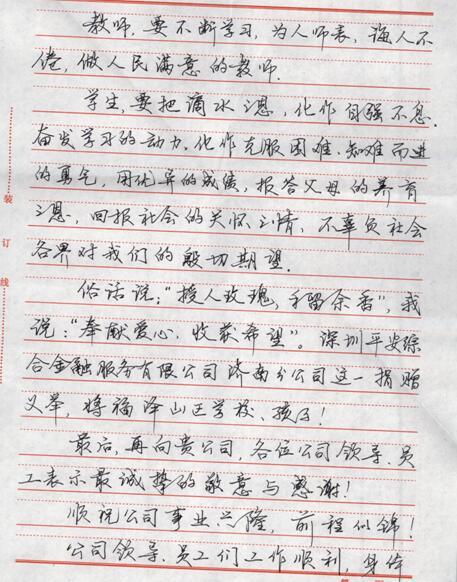 教师，要不断学习，为人师表，诲人不
倦，做人民满意的教师。
学生，要把滴水之恩，化作自强不息，
奋发学习的动力，化作克服困难、知难而进
的勇气，用优异的成绩，报答父母的养育
之恩，回报社会的关怀之情，不辜负社会
各界对我们的殷切期望。
俗话说：“授人玫瑰，手留余香”，我
说：“奉献爱心，收获希望”。深圳平安综
合金融服务有限公司济南分公司这一捐赠
义举，将福泽山区学校、孩子！
最后，再向贵公司，各位公司领导、员
工表示最诚挚的敬意与感谢！
顺祝公司事业兴隆，前程似锦！
公司领导、员工们工作顺利，身体
装
订
线